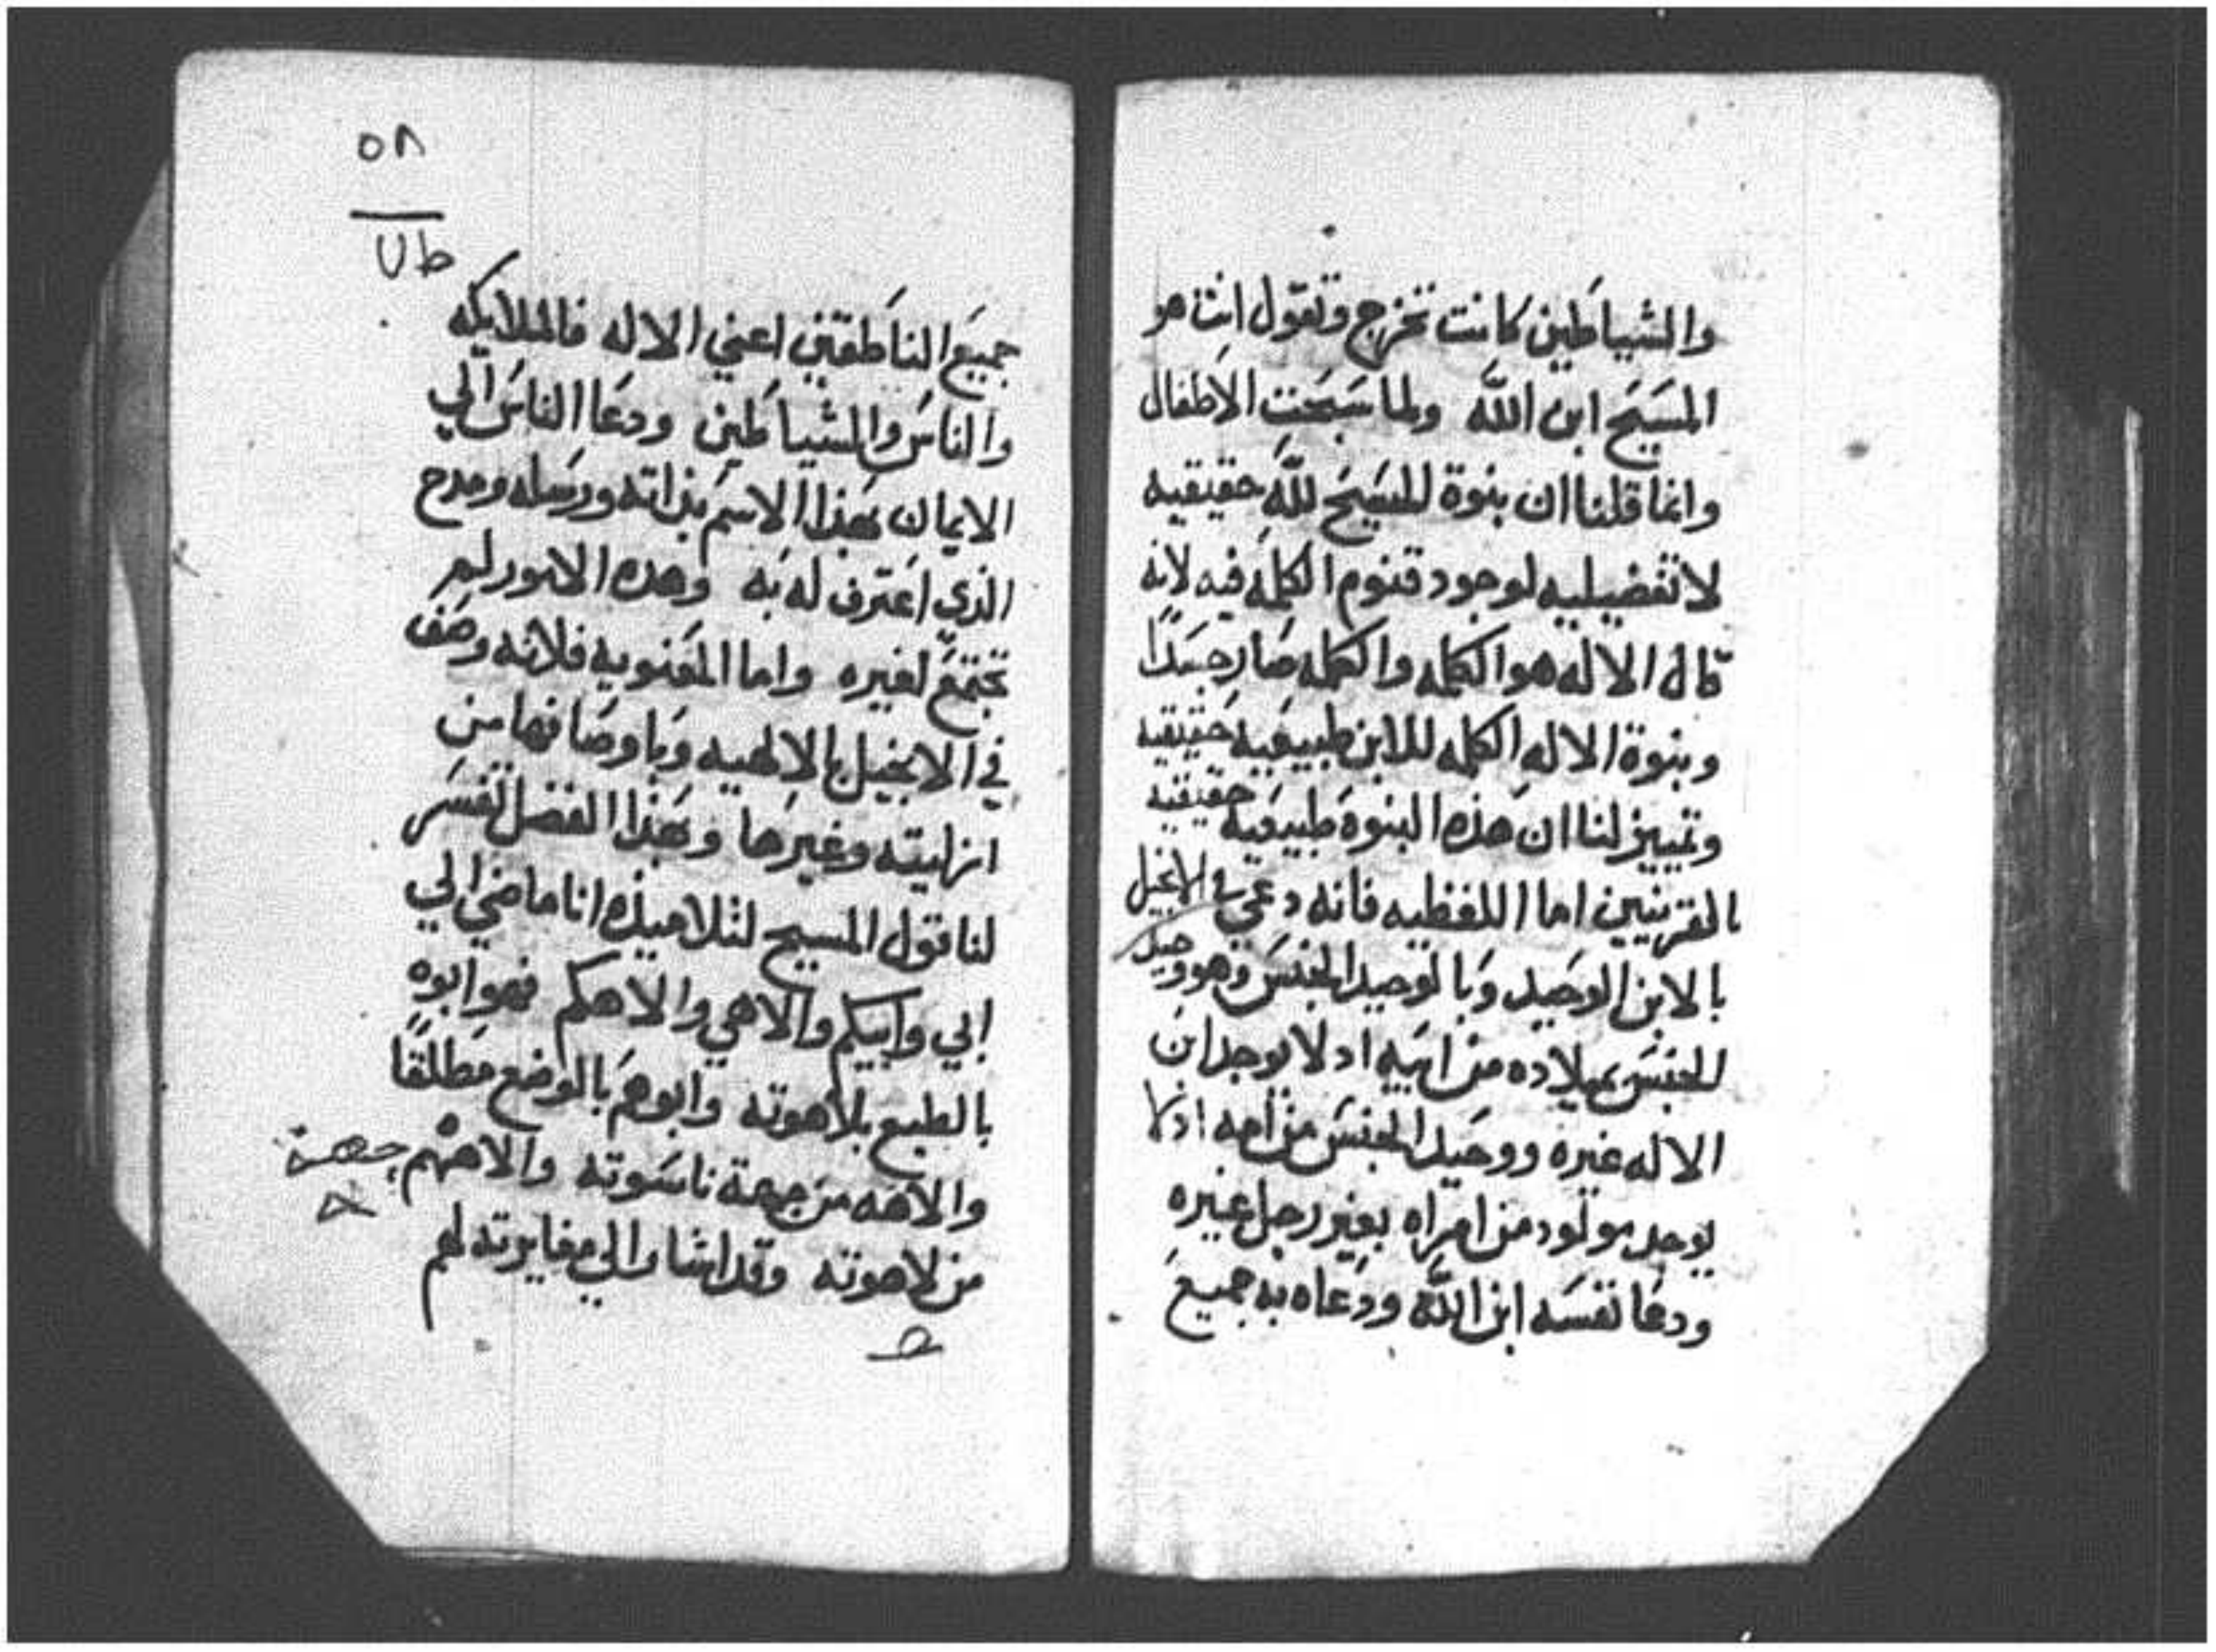 والشياطين كانت تخرج وتقول انت هو
المسيح ابن الله ولما سبحت الاطفال
وانما قلنا ان بنوة المسيح لله حقيقيه
لا تفضيليه لوجود قنوم الكلمه فيه لانه
قال الاله هو الكلمه والكلمه صار جسدًا
وبنوة الاله الكلمه للابن طبيعيه حقيقيه
وتمييز لنا ان هذه البنوة طبيعيه حقيقيه
بالقرينين اما اللفظيه فانه دعي في الانجيل
بالابن الوحيد وبالوحيد الجنس وهو وحيد
الجنس بميلاده من ابيه اد لا يوجد ابن
الاله غيره ووحيد الجنس من امه اذ لا
يوجد مولود من امراه بغير رجل غيره
ودعا نفسه ابن الله ودعاه به جميع
٥٨
ط
جميع الناطقين اعني الاله فالملايكه
والناس والشياطين ودعا الناس الي
الايمان بهذا الاسم بذاته ورسله ومدح
الذي اعترف له به وهده الامور لم
تجتمع لغيره واما المعنويه فلانه وصف
في الانجيل بالالهيه وباوصافها من
ازليته وغيرها وبهذا الفضل تفسر
لنا قول المسيح لتلاميذه انا ماضي الي
ابي وابيكم والاهي والاهكم فهو ابوه
بالطبع بلاهوته وابوهم بالوضع مطلقًا
والاهه من جهة ناسوته والاههم جهة
من لاهوته وقد اشار الي مغايرته لهم